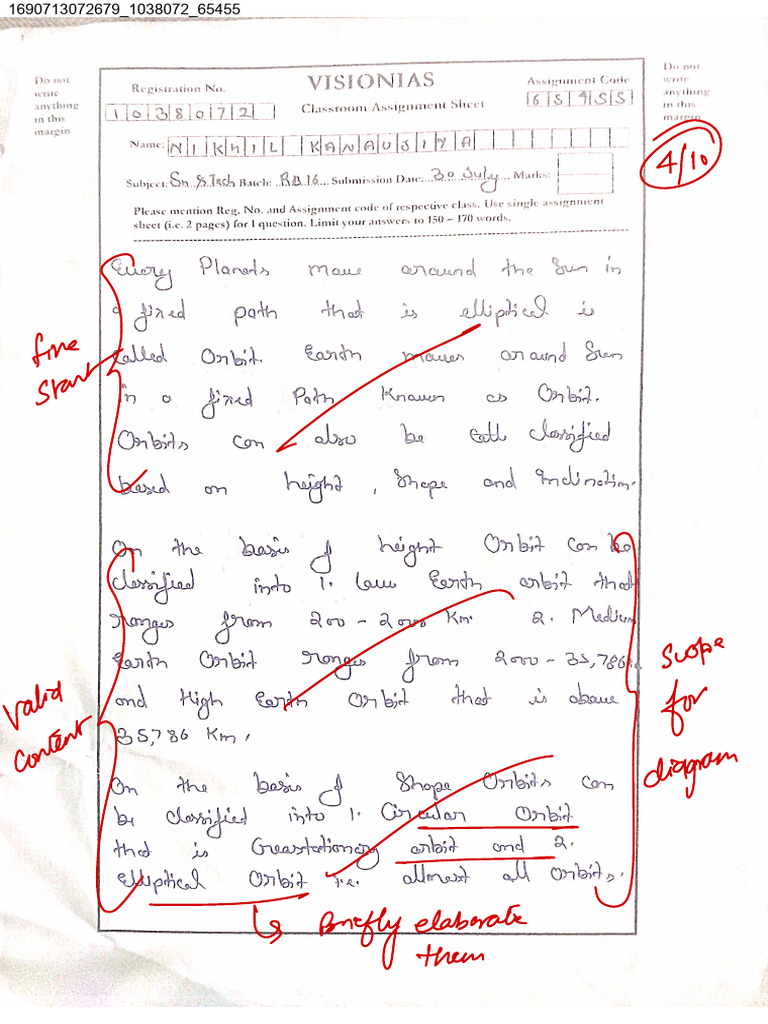 1690713072679_1038072_65455
Do not
write
anything
in this
margin
Registration No.
1038072
VISIONIAS
Classroom Assignment Sheet
Assignment Code
Do not
write
anything
in this
margin
Name: NIKHIL KANAUJIYA
4/10
Subject: Sn & Tech Batch: Submission Date: 30 July Marks:
Please mention Reg. No. and Assignment code of respective class. Use single assignment
sheet (i.e. 2 pages) for 1 question. Limit your answers to 150 – 170 words.
Every Planets move around the Sun in
a fixed path that is elliptical is
called Orbit. Earth moves around Sun
in a fixed Path Known as Orbit.
Orbits can also be call classified
based on height, Shape and Inclination.
fine
start
On the basis of height Orbit can be
classified into 1. Low Earth orbit that
ranges from 200 - 2000 Km. 2. Medium
Earth Orbit ranges from 2000 - 35,786
and High Earth Orbit that is above
35,786 Km.
On the basis of Shape Orbits can
be classified into 1. Circular Orbit
that is Geostationary orbit and 2.
Elliptical Orbit i.e. allmost all Orbits.
Valid
content
Scope
for
diagram
Briefly elaborate
them